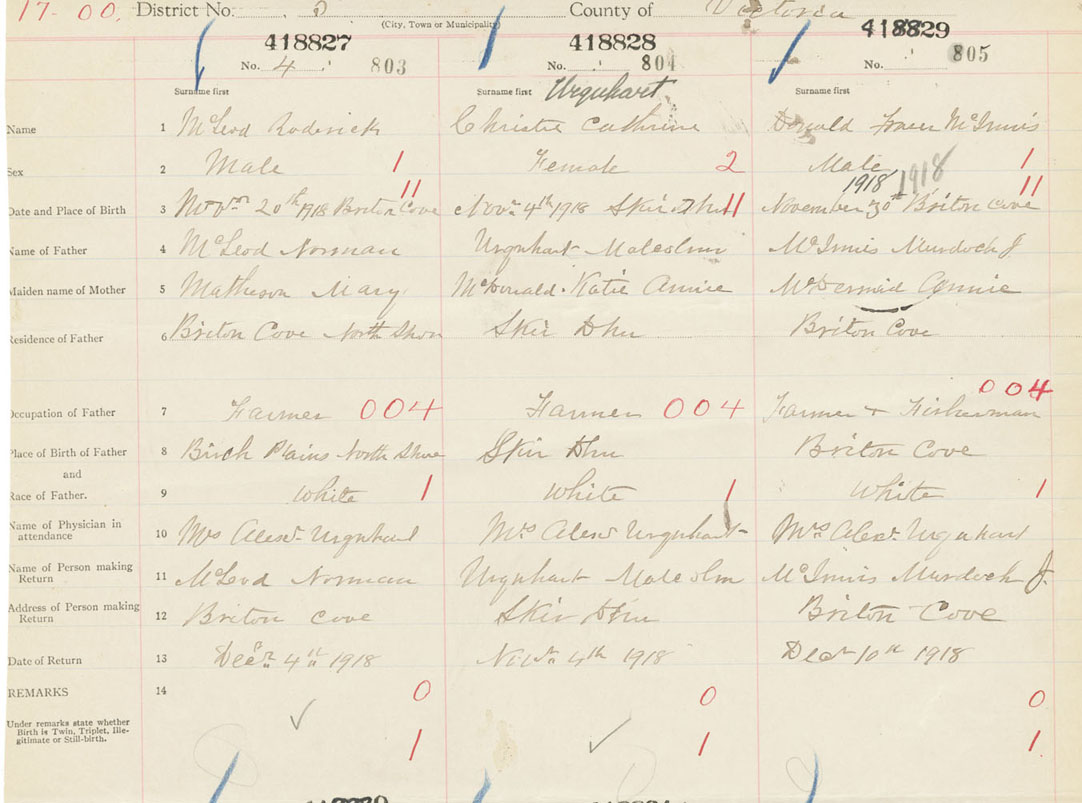 17-00. District No. 3 County of Victoria
(City, Town or Municipality)
418827 418828 418829
No. 4 803 No. 804 No. 805
Surname first Surname first Urquhart Surname first
Name 1 McLeod Roderick Christie Cathrine Donald Fraser McInnis
Sex 2 Male 1 Female 2 Male 1
1918 1918
11 11
Date and Place of Birth 3 Novr 20th 1918 Briton Cove Novr 4th 1918 Skir Dhu 11 November 30th Briton Cove
Name of Father 4 McLeod Norman Urquhart Malcolm McInnis Murdock J
Maiden name of Mother 5 Matheson Mary McDonald Katie Annie McDermid Annie
Residence of Father 6 Briton Cove North Shore Skir Dhu Briton Cove
004
Occupation of Father 7 Farmer 004 Farmer 004 Farmer + Fisherman
Place of Birth of Father 8 Birch Plains North Shore Skir Dhu Briton Cove
and
Race of Father. 9 White 1 White 1 White 1
Name of Physician in
attendance 10 Mrs Alexr Urquhart Mrs Alexr Urquhart Mrs Alexr Urquhart
Name of Person making
Return 11 McLeod Norman Urquhart Malcolm McInnis Murdock J.
Address of Person making
Return 12 Briton Cove Skir Dhu Briton Cove
Date of Return 13 Decr 4th 1918 Novr 4th 1918 Decr 10th 1918
REMARKS 14 0 0 0
Under remarks state whether
Birth is Twin, Triplet, Ille-
gitimate or Still-birth. 1 1 1